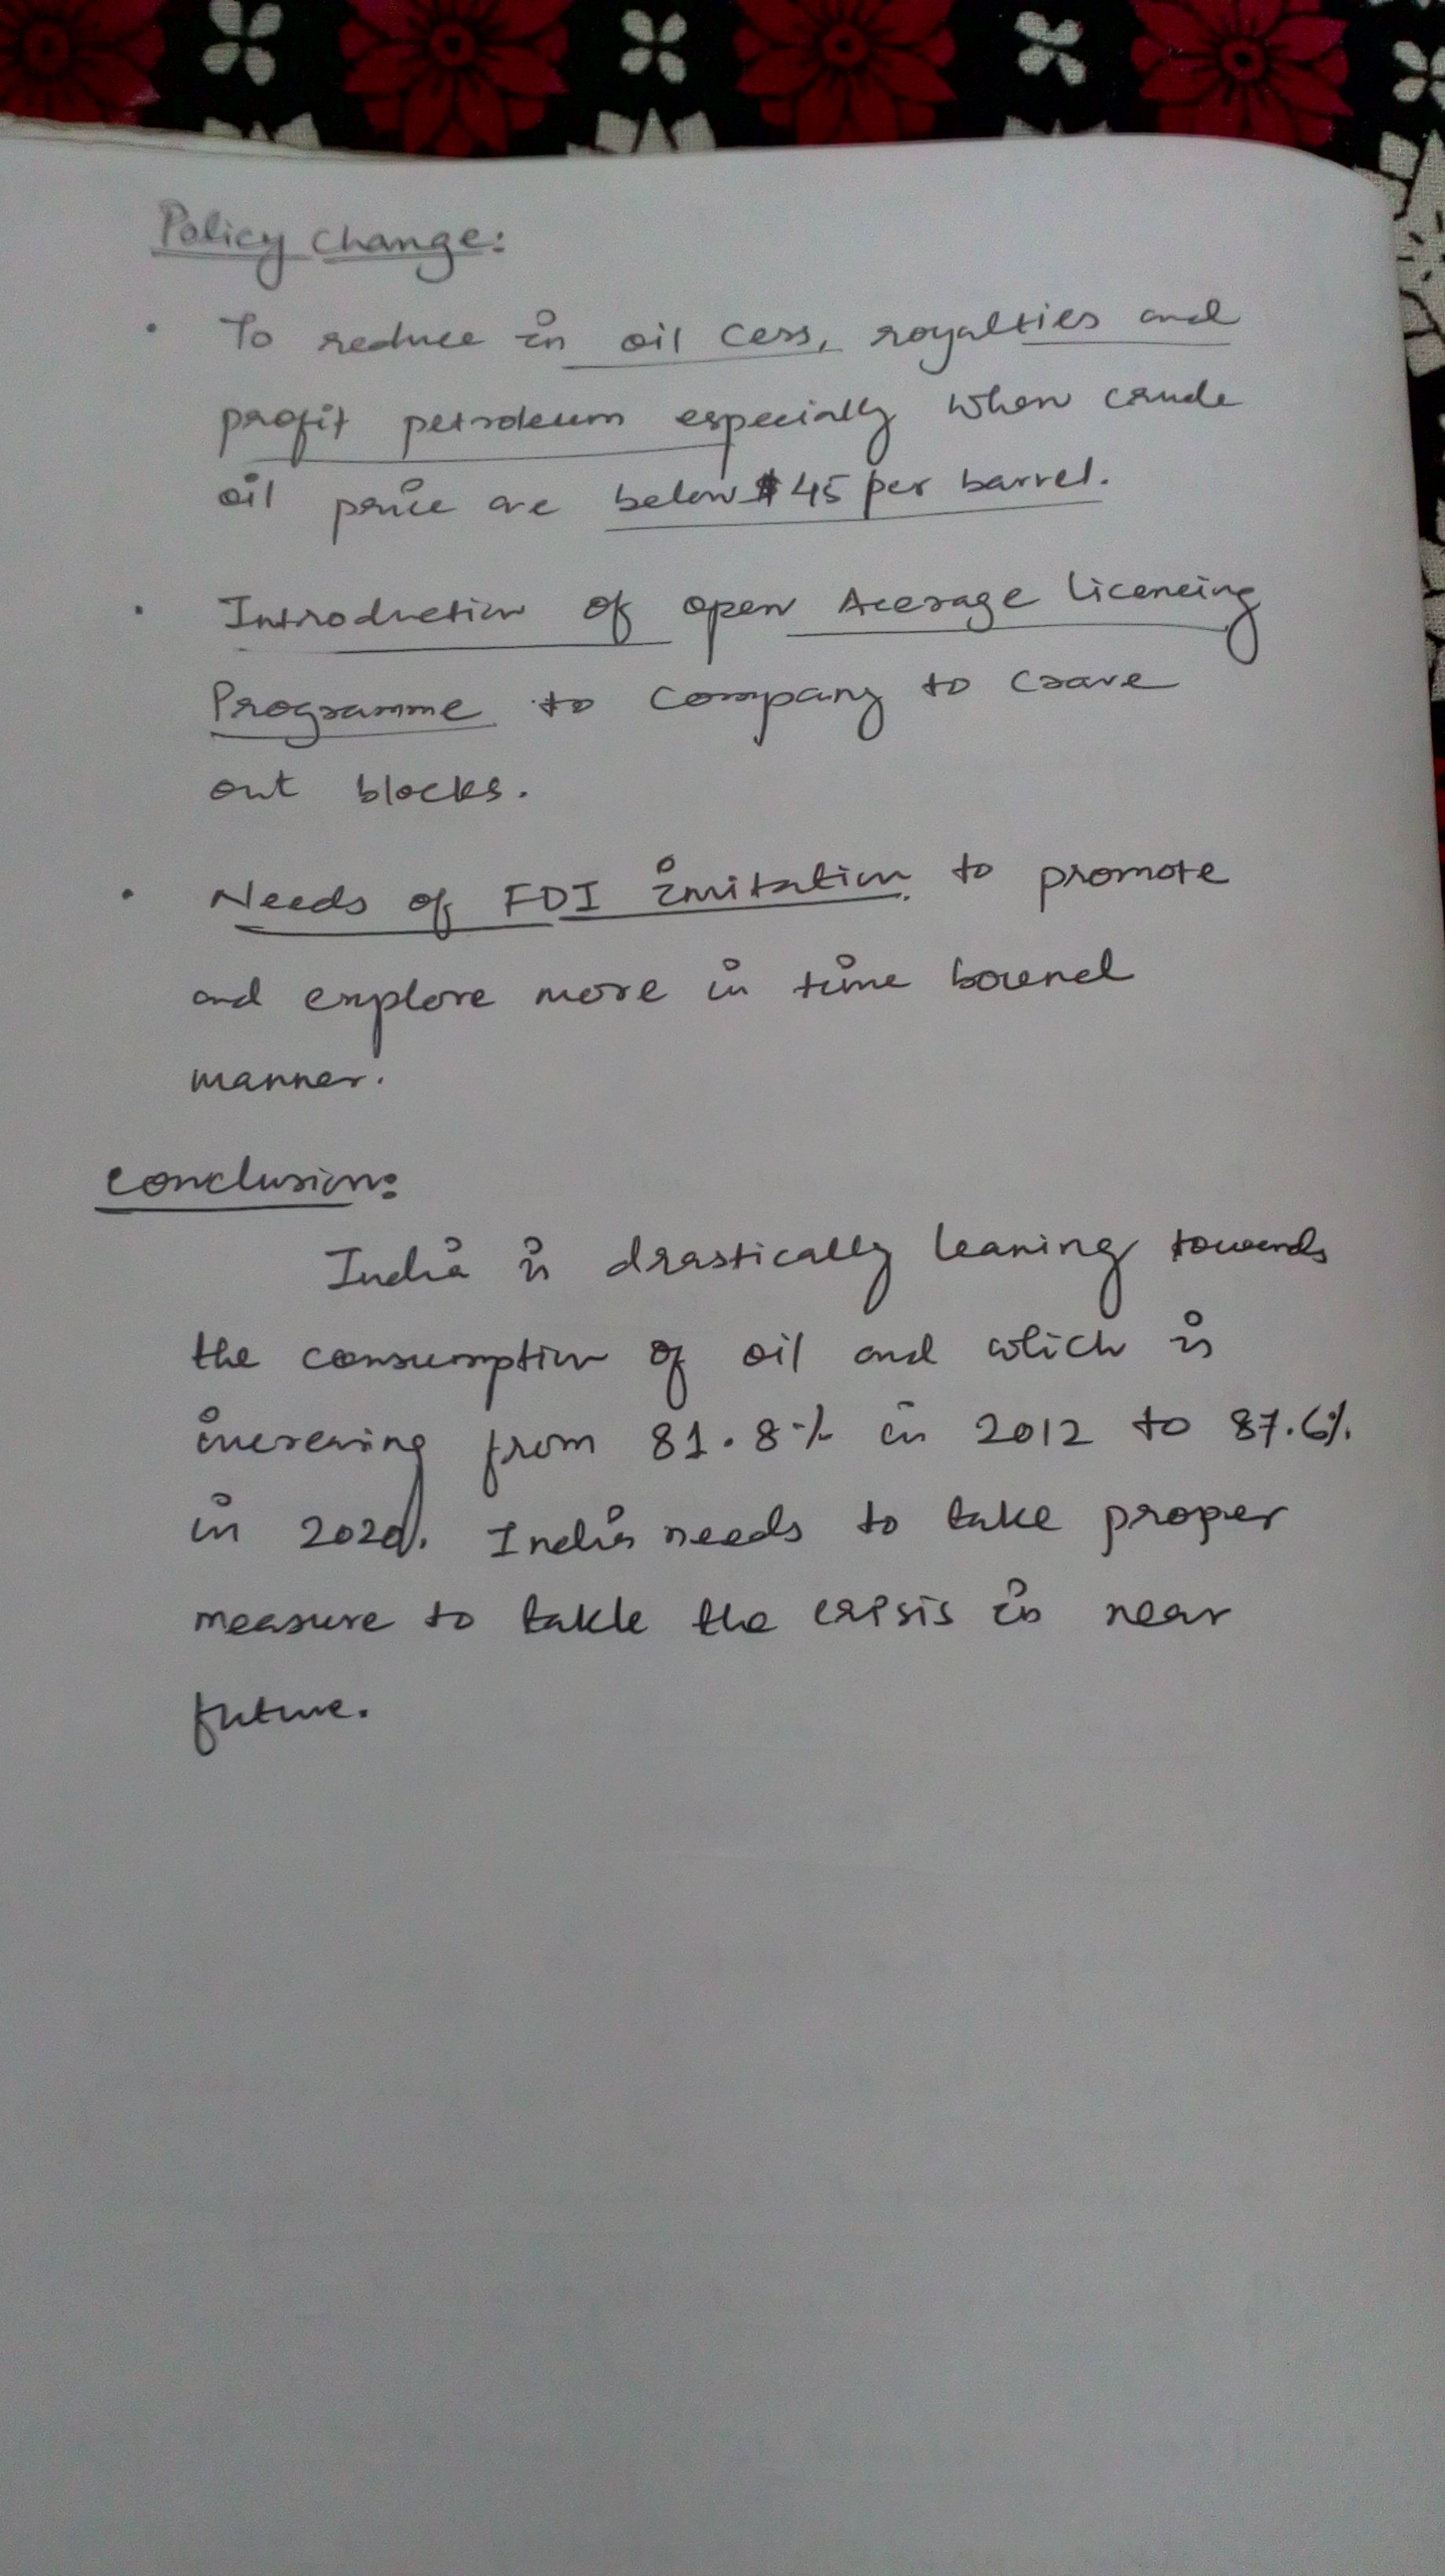 Policy Change:
• To reduce in oil Cess, royalties and
profit petroleum especially when crude
oil price are below $45 per barrel.
• Introduction of open Acerage licencing
Programme to Company to crave
out blocks.
• Needs of FDI imitation to promote
and explore more in time bound
manner.
Conclusion:
India is drastically leaning towards
the consumption of oil and which is
increasing from 81.8% in 2012 to 87.6%
in 2020. India needs to take proper
measure to takle the crisis in near
future.